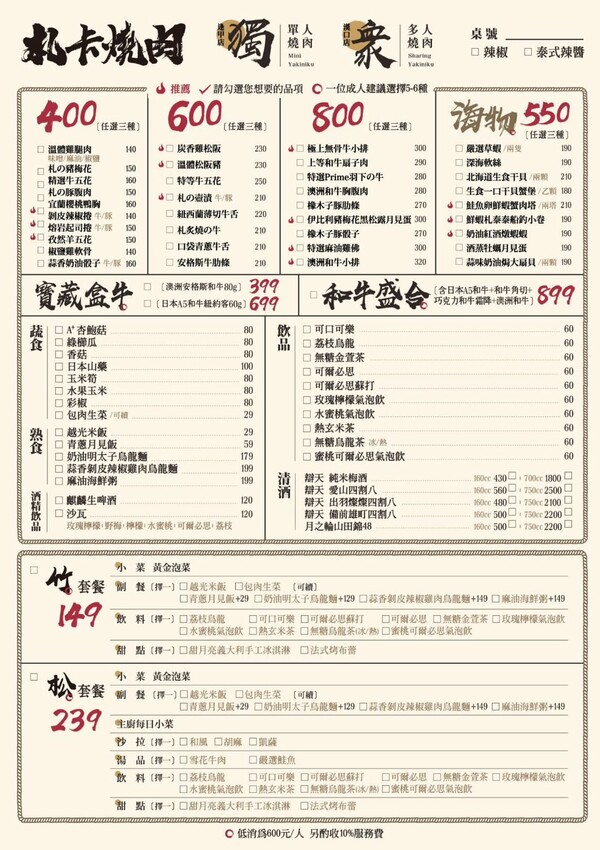 札卡燒肉
逢甲店 獨 單人燒肉 Mini Yakiniku
漢口店 衆 多人燒肉 Sharing Yakiniku
桌號
□ 辣椒 □ 泰式辣醬
推薦 ✓ 請勾選您想要的品項 一位成人建議選擇5-6種
400 [任選三種]
□ 溫體雞腿肉 140
味噌/麻油/椒鹽
□ 札の豬梅花 150
□ 精選牛五花 160
□ 札の豚腹肉 150
□ 宜蘭櫻桃鴨胸 160
□ 剝皮辣椒捲 牛/豚 140
□ 熔岩起司捲 牛/豚 150
□ 孜然羊五花 150
□ 椒鹽雞軟骨 140
□ 蒜香奶油骰子 牛/豚 160
600 [任選三種]
□ 炭香雞松阪 230
□ 溫體松阪豬 230
□ 特等牛五花 250
□ 札の壺漬 牛/豚 210
□ 紐西蘭薄切牛舌 220
□ 札炙燒の牛 210
□ 口袋青蔥牛舌 210
□ 安格斯牛肋條 210
800 [任選三種]
□ 極上無骨牛小排 300
□ 上等和牛扇子肉 290
□ 特選Prime羽下の牛 280
□ 澳洲和牛胸腹肉 280
□ 橡木子豚肋條 280
□ 伊比利豬梅花黑松露月見蛋 300
□ 橡木子豚骰子 290
□ 特選麻油雞佛 300
□ 澳洲和牛小排 320
海物 550 [任選三種]
□ 嚴選草蝦/兩隻 190
□ 深海軟絲 190
□ 北海道生食干貝/兩顆 210
□ 生食一口干貝蟹堡/乙顆 180
□ 鮭魚卵鮮蝦蟹肉塔/兩塔 210
□ 鮮蝦札泰泰船釣小卷 190
□ 奶油紅酒燉蝦蝦 190
□ 酒蒸牡蠣月見蛋 190
□ 蒜味奶油焗大扇貝/兩顆 190
寶藏盒牛
□ [澳洲安格斯和牛80g] 399
□ [日本A5和牛紐約客60g] 699
□ 和牛盛合 [含日本A5和牛+和牛角切+巧克力和牛霜降+澳洲和牛] 899
蔬食
□ A+杏鮑菇 80
□ 綠櫛瓜 80
□ 香菇 80
□ 日本山藥 100
□ 玉米筍 80
□ 水果玉米 80
□ 彩椒 80
□ 包肉生菜/可續 29
熟食
□ 越光米飯 29
□ 青蔥月見飯 59
□ 奶油明太子烏龍麵 179
□ 蒜香剝皮辣椒雞肉烏龍麵 199
□ 麻油海鮮粥 199
酒精飲品
□ 麒麟生啤酒 120
□ 沙瓦 120
玫瑰檸檬/野梅/檸檬/水蜜桃/可爾必思/荔枝
飲品
□ 可口可樂 60
□ 荔枝烏龍 60
□ 無糖金萱茶 60
□ 可爾必思 60
□ 可爾必思蘇打 60
□ 玫瑰檸檬氣泡飲 60
□ 水蜜桃氣泡飲 60
□ 熱玄米茶 60
□ 無糖烏龍茶 冰/熱 60
□ 蜜桃可爾必思氣泡飲 60
清酒
辯天 純米梅酒 160cc 430□ 700cc 1800□
辯天 愛山四割八 160cc 560□ 750cc 2500□
辯天 出羽燦燦四割八 160cc 480□ 750cc 2100□
辯天 備前雄町四割八 160cc 500□ 750cc 2200□
月之輪山田錦48 160cc 500□ 750cc 2200□
□ 竹套餐 149
小菜 黃金泡菜
副餐 [擇一] □ 越光米飯 □ 包肉生菜 [可續]
□ 青蔥月見飯+29 □ 奶油明太子烏龍麵+129 □ 蒜香剝皮辣椒雞肉烏龍麵+149 □ 麻油海鮮粥+149
飲料 [擇一] □ 荔枝烏龍 □ 可口可樂 □ 可爾必思蘇打 □ 可爾必思 □ 無糖金萱茶 □ 玫瑰檸檬氣泡飲
□ 水蜜桃氣泡飲 □ 熱玄米茶 □ 無糖烏龍茶(冰/熱) □ 蜜桃可爾必思氣泡飲
甜點 [擇一] □ 甜月亮義大利手工冰淇淋 □ 法式烤布蕾
□ 松套餐 239
小菜 黃金泡菜
副餐 [擇一] □ 越光米飯 □ 包肉生菜 [可續]
□ 青蔥月見飯+29 □ 奶油明太子烏龍麵+129 □ 蒜香剝皮辣椒雞肉烏龍麵+149 □ 麻油海鮮粥+149
主廚每日小菜
沙拉 [擇一] □ 和風 □ 胡麻 □ 凱薩
湯品 [擇一] □ 雪花牛肉 □ 嚴選鮭魚
飲料 [擇一] □ 荔枝烏龍 □ 可口可樂 □ 可爾必思蘇打 □ 可爾必思 □ 無糖金萱茶 □ 玫瑰檸檬氣泡飲
□ 水蜜桃氣泡飲 □ 熱玄米茶 □ 無糖烏龍茶(冰/熱) □ 蜜桃可爾必思氣泡飲
甜點 [擇一] □ 甜月亮義大利手工冰淇淋 □ 法式烤布蕾
低消為600元/人 另酌收10%服務費